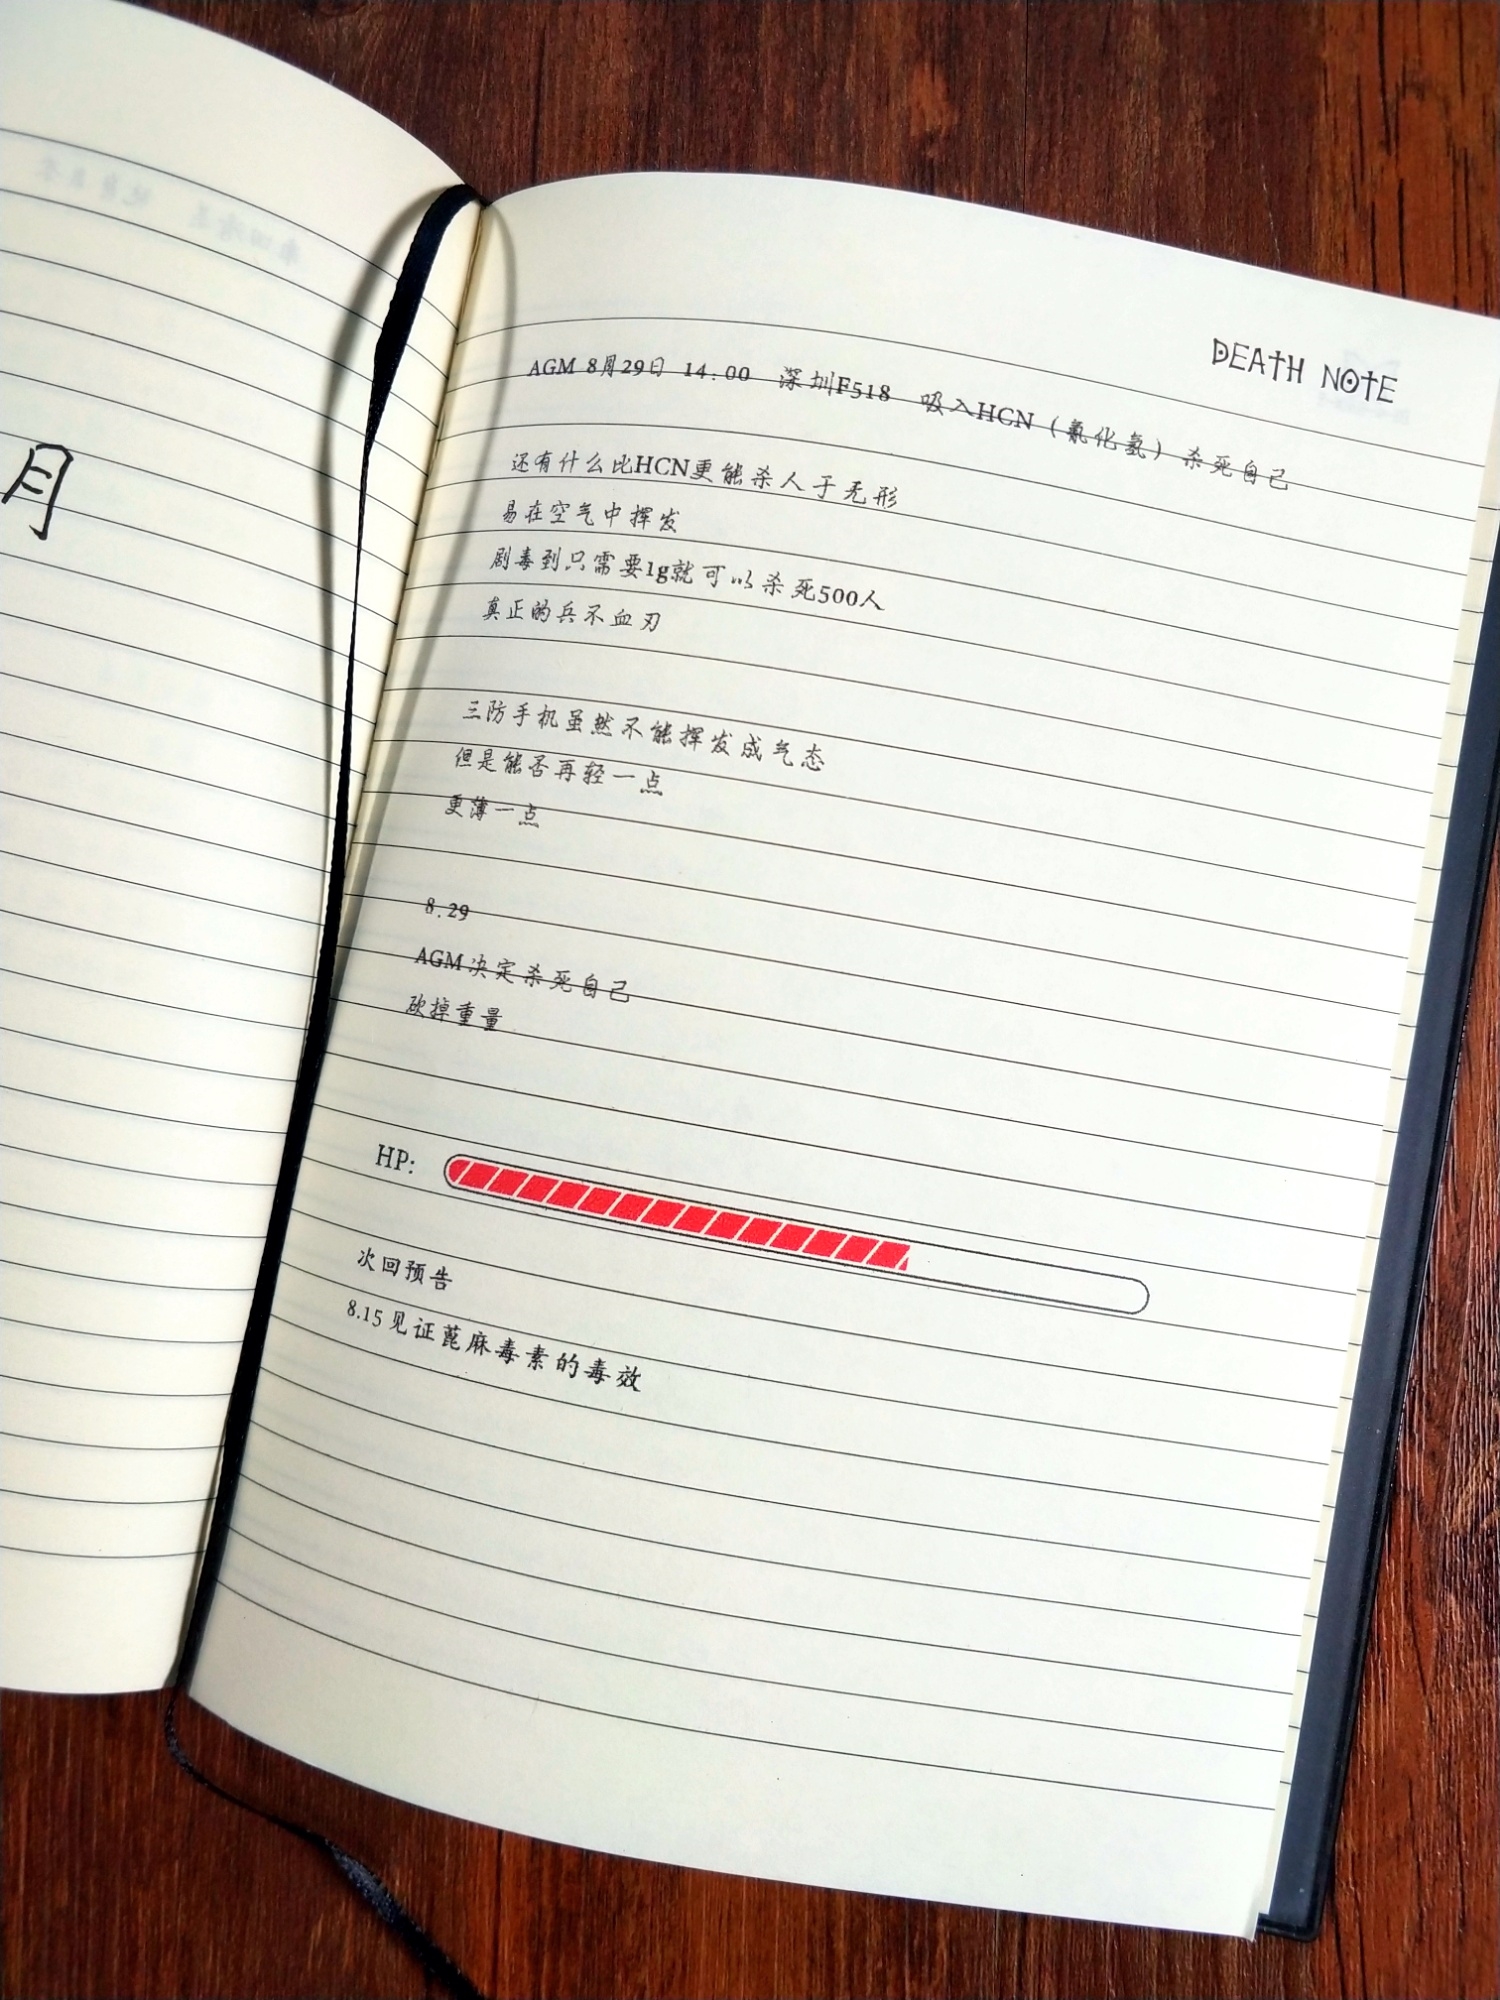 月
DEATH NOTE
AGM 8月29日 14:00 深圳F518 吸入HCN（氰化氢）杀死自己
还有什么比HCN更能杀人于无形
易在空气中挥发
剧毒到只需要1g就可以杀死500人
真正的兵不血刃
三防手机虽然不能挥发成气态
但是能否再轻一点
更薄一点
8.29
AGM决定杀死自己
砍掉重量
HP:
次回预告
8.15 见证蓖麻毒素的毒效